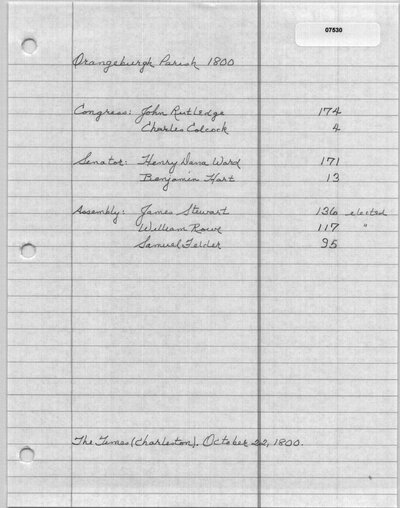 07530
Orangeburgh Parish 1800
Congress: John Rutledge 174
Charles Colcock 4
Senator: Henry Dana Ward 171
Benjamin Hart 13
Assembly: James Stewart 136 elected
William Rowe 117 "
Samuel Felder 95
The Times (Charleston). October 22, 1800.